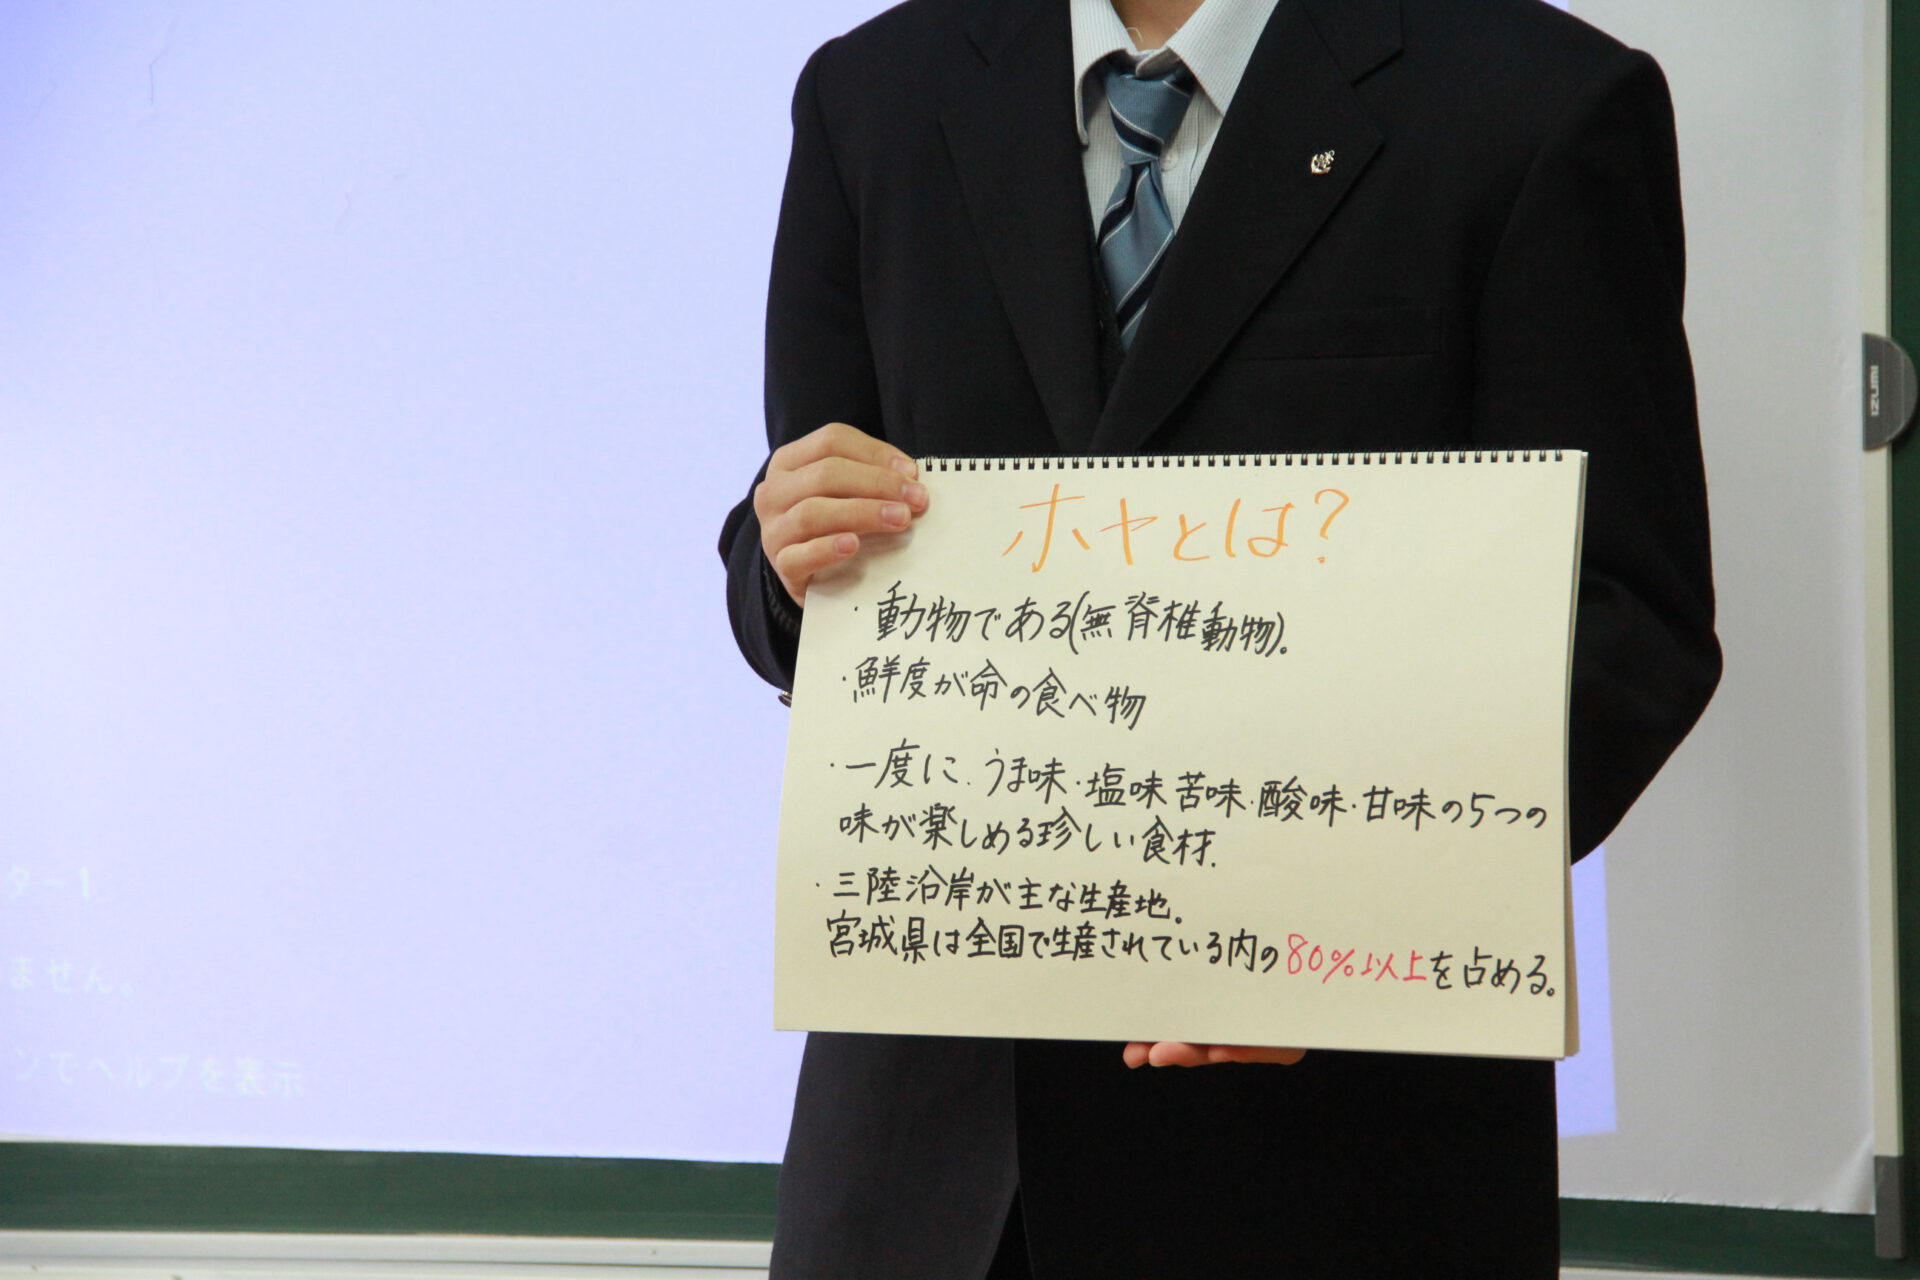 ホヤとは?
・動物である(無脊椎動物)。
・鮮度が命の食べ物
・一度に、うま味・塩味 苦味・酸味・甘味の5つの
味が楽しめる珍しい食材.
・三陸沿岸が主な生産地。
宮城県は全国で生産されている内の80%以上を占める。
IZUMI
ター1
ません。
ンでヘルプを表示